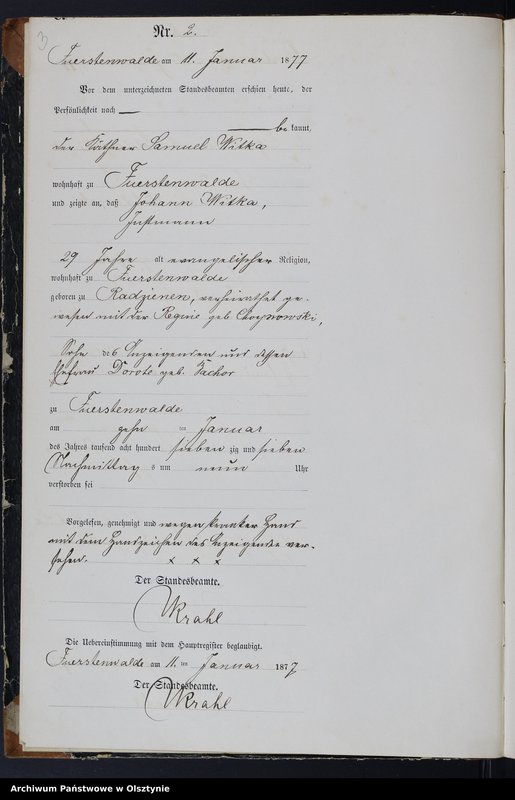 3
Nr. 2.
Fuerstenwalde am 11. Januar 1877
Vor dem unterzeichneten Standesbeamten erschien heute, der
Persönlichkeit nach
be kannt,
der Käthner Samuel Witka
wohnhaft zu Fuerstenwalde
und zeigte an, daß Johann Witka,
Instmann
29 Jahre alt evangelischer Religion,
wohnhaft zu Fuerstenwalde
geboren zu Radzienen, verheirathet ge-
wesen mit der Regine geb
Sohn des Anzeigenden und dessen
Ehefrau Dorote geb.
zu Fuerstenwalde
am zehn ten Januar
des Jahres tausend acht hundert sieben zig und sieben
Nachmittag s um neun Uhr
verstorben sei
Vorgelesen, genehmigt und wegen kranker Hand
mit dem Handzeichen des Anzeigenden ver-
sehen. x x x
Der Standesbeamte.
Krahl
Die Uebereinstimmung mit dem Hauptregister beglaubigt.
Fuerstenwalde am 11. ten Januar 1877
Der Standesbeamte.
Krahl
Archiwum Państwowe w Olsztynie